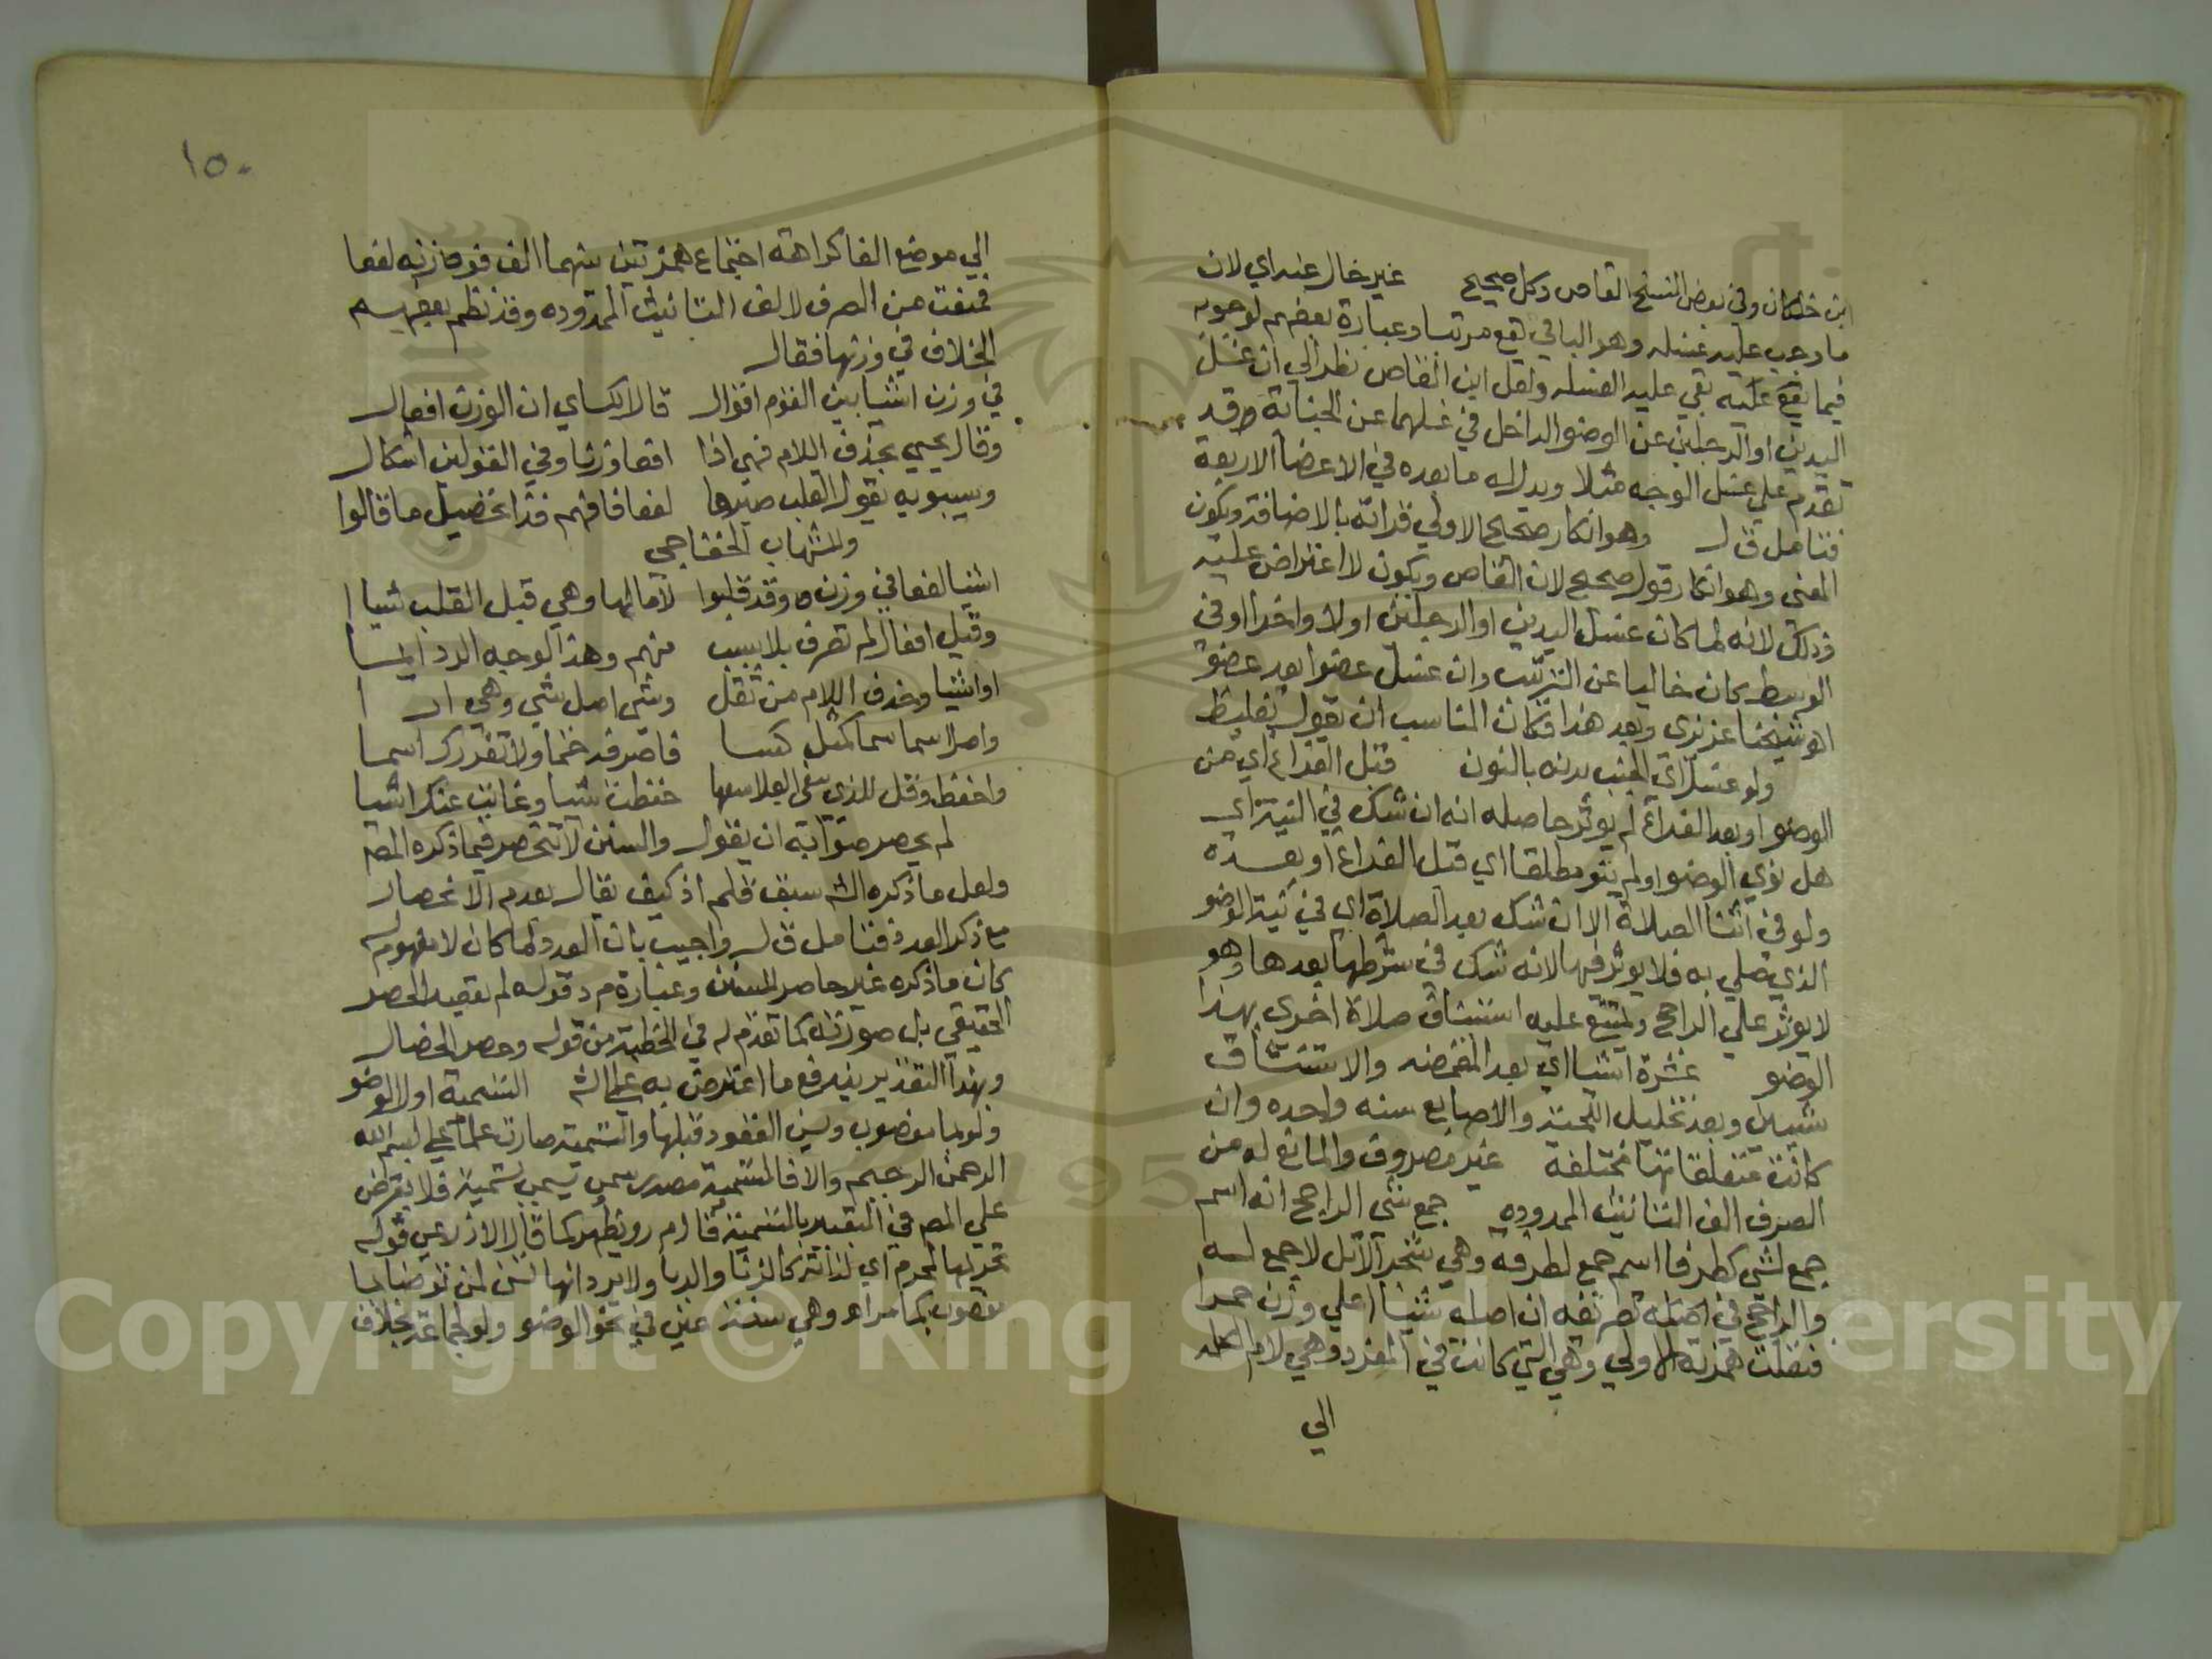 ابن خلكان وفي بعض النسخ القاص وكل صحيح غير خال عنه اي لان
ما وجب عليه غسله وهو الباقي يقع مرتبا وعبارة بعضهم لوجوبه
فيما يقع عليه بقي عليه الغسله ولعل ابن القاص نظر الي ان غسل
اليدين او الرجلين عن الوضو الداخل في غسلهما عن الجنابة قد
تقدم علي غسل الوجه مثلا وبدله ما بعده في الاعضا الاربعة
فتامل ق ل وهو انكار صحيح الاولي قراته بالاضافة ويكون
المعنى وهو انكار قول صحيح لان القاص ويكون لا اعتراض عليه
وذلك لانه لما كان غسل اليدين او الرجلين اولا واخرا او في
الوسط كان خاليا عن الترتيب وان غسل عضوا بعد عضو
اه شيخنا عزيزى وبعد هذا فكان المناسب ان يقول تغليظ
ولو غسل اي الجنب بدنه بالنون قبل الفراغ اي من
الوضوء او بعد الفراغ لم يوثر حاصله انه ان شك في النية اي
هل نوي الوضو او لم ينو مطلقا اي قبل الفراغ او بعده
ولو في اثنا الصلاة الا ان شك بعد الصلاة اي في نية الوضو
الذي صلي به فلا يوثر فيها لانه شك في شرطها بعدها وهو
لا يوثر علي الراجح ويمتنع عليه استئناف صلاة اخرى بهذا
الوضو عشرة اشيا اي بعد المضمضه والاستنشاق
شيين وبعد تخليل اللحية والاصابع سنه واحده وان
كانت متعلقاتها مختلفة غير مصروف والمانع له من
الصرف الف التانيث الممدوده جمع شي الراجح انه اسم
جمع لشي كطرفا اسم جمع لطرفة وهي شجر الاثل لا جمع له
والراجح في اصله تصريفه ان اصله شيئا علي وزن حمرا
فنقلت همزته الاولي وهي التي كانت في المفرد وهي لام الكلمه
الي
١٥٠
الي موضع الفا كراهة اجتماع همزتين بينهما الف فوزنه لفعا
فمنعت من الصرف لالف التانيث الممدوده وقد نظم بعضهم
الخلاف في وزنها فقال
في وزن اشيا بين القوم اقوال قال الكساي ان الوزن افعال
وقال يحيي بحذف اللام فهي اذا افعا وزنا وفي القولين اشكال
وسيبويه يقول القلب صيرها لفعا فافهم فذا تحصيل ما قالوا
وللشهاب الخفاجي
اشيا لفعا في وزن وقد قلبوا لاما لها وهي قبل القلب شيا ا
وقيل افعال لم تصرف بلا سبب منهم وهذا لوجه الرد ايما
او اشيا وحذف اللام من ثقل وشي اصل شي وهي ا
واصل اسما سما كمثل كسا فاصرفه حتما ولا تغررك اسما
واحفظ وقل للذي حفظت شيا وغابت عنك اشيا
لم يحصر صوابه ان يقول والسنن لا تنحصر فيما ذكره المص
ولعل ما ذكره الش سبق قلم اذ كيف يقال بعدم الانحصار
مع ذكر العدد فتامل ق ل واجيب بان العدد لما كان لا مفهوم له
كان ما ذكره غير حاصر للسنن وعبارة م د قوله لم يقصد الحصر
الحقيقي بل صورته كما تقدم له في الخطبة من قوله وحصر الخصال
وبهذا التقدير يندفع ما اعترض به علي الش التسمية اول الوضو
ولو بما مغصوب ويسن التعوذ قبلها والتسمية صارت علما علي بسم الله
الرحمن الرحيم والا فالتسمية مصدر سمي يسمي تسمية فلا يعترض
علي المص في التعبير بالتسمية
تحريمها لمحرم اي لذاته كالزنا والربا ولا يرد انها تسن لمن توضا بما
مغصوب كما مر اه وهي سنة عين في نحو الوضو ولو لجماعة بخلاف